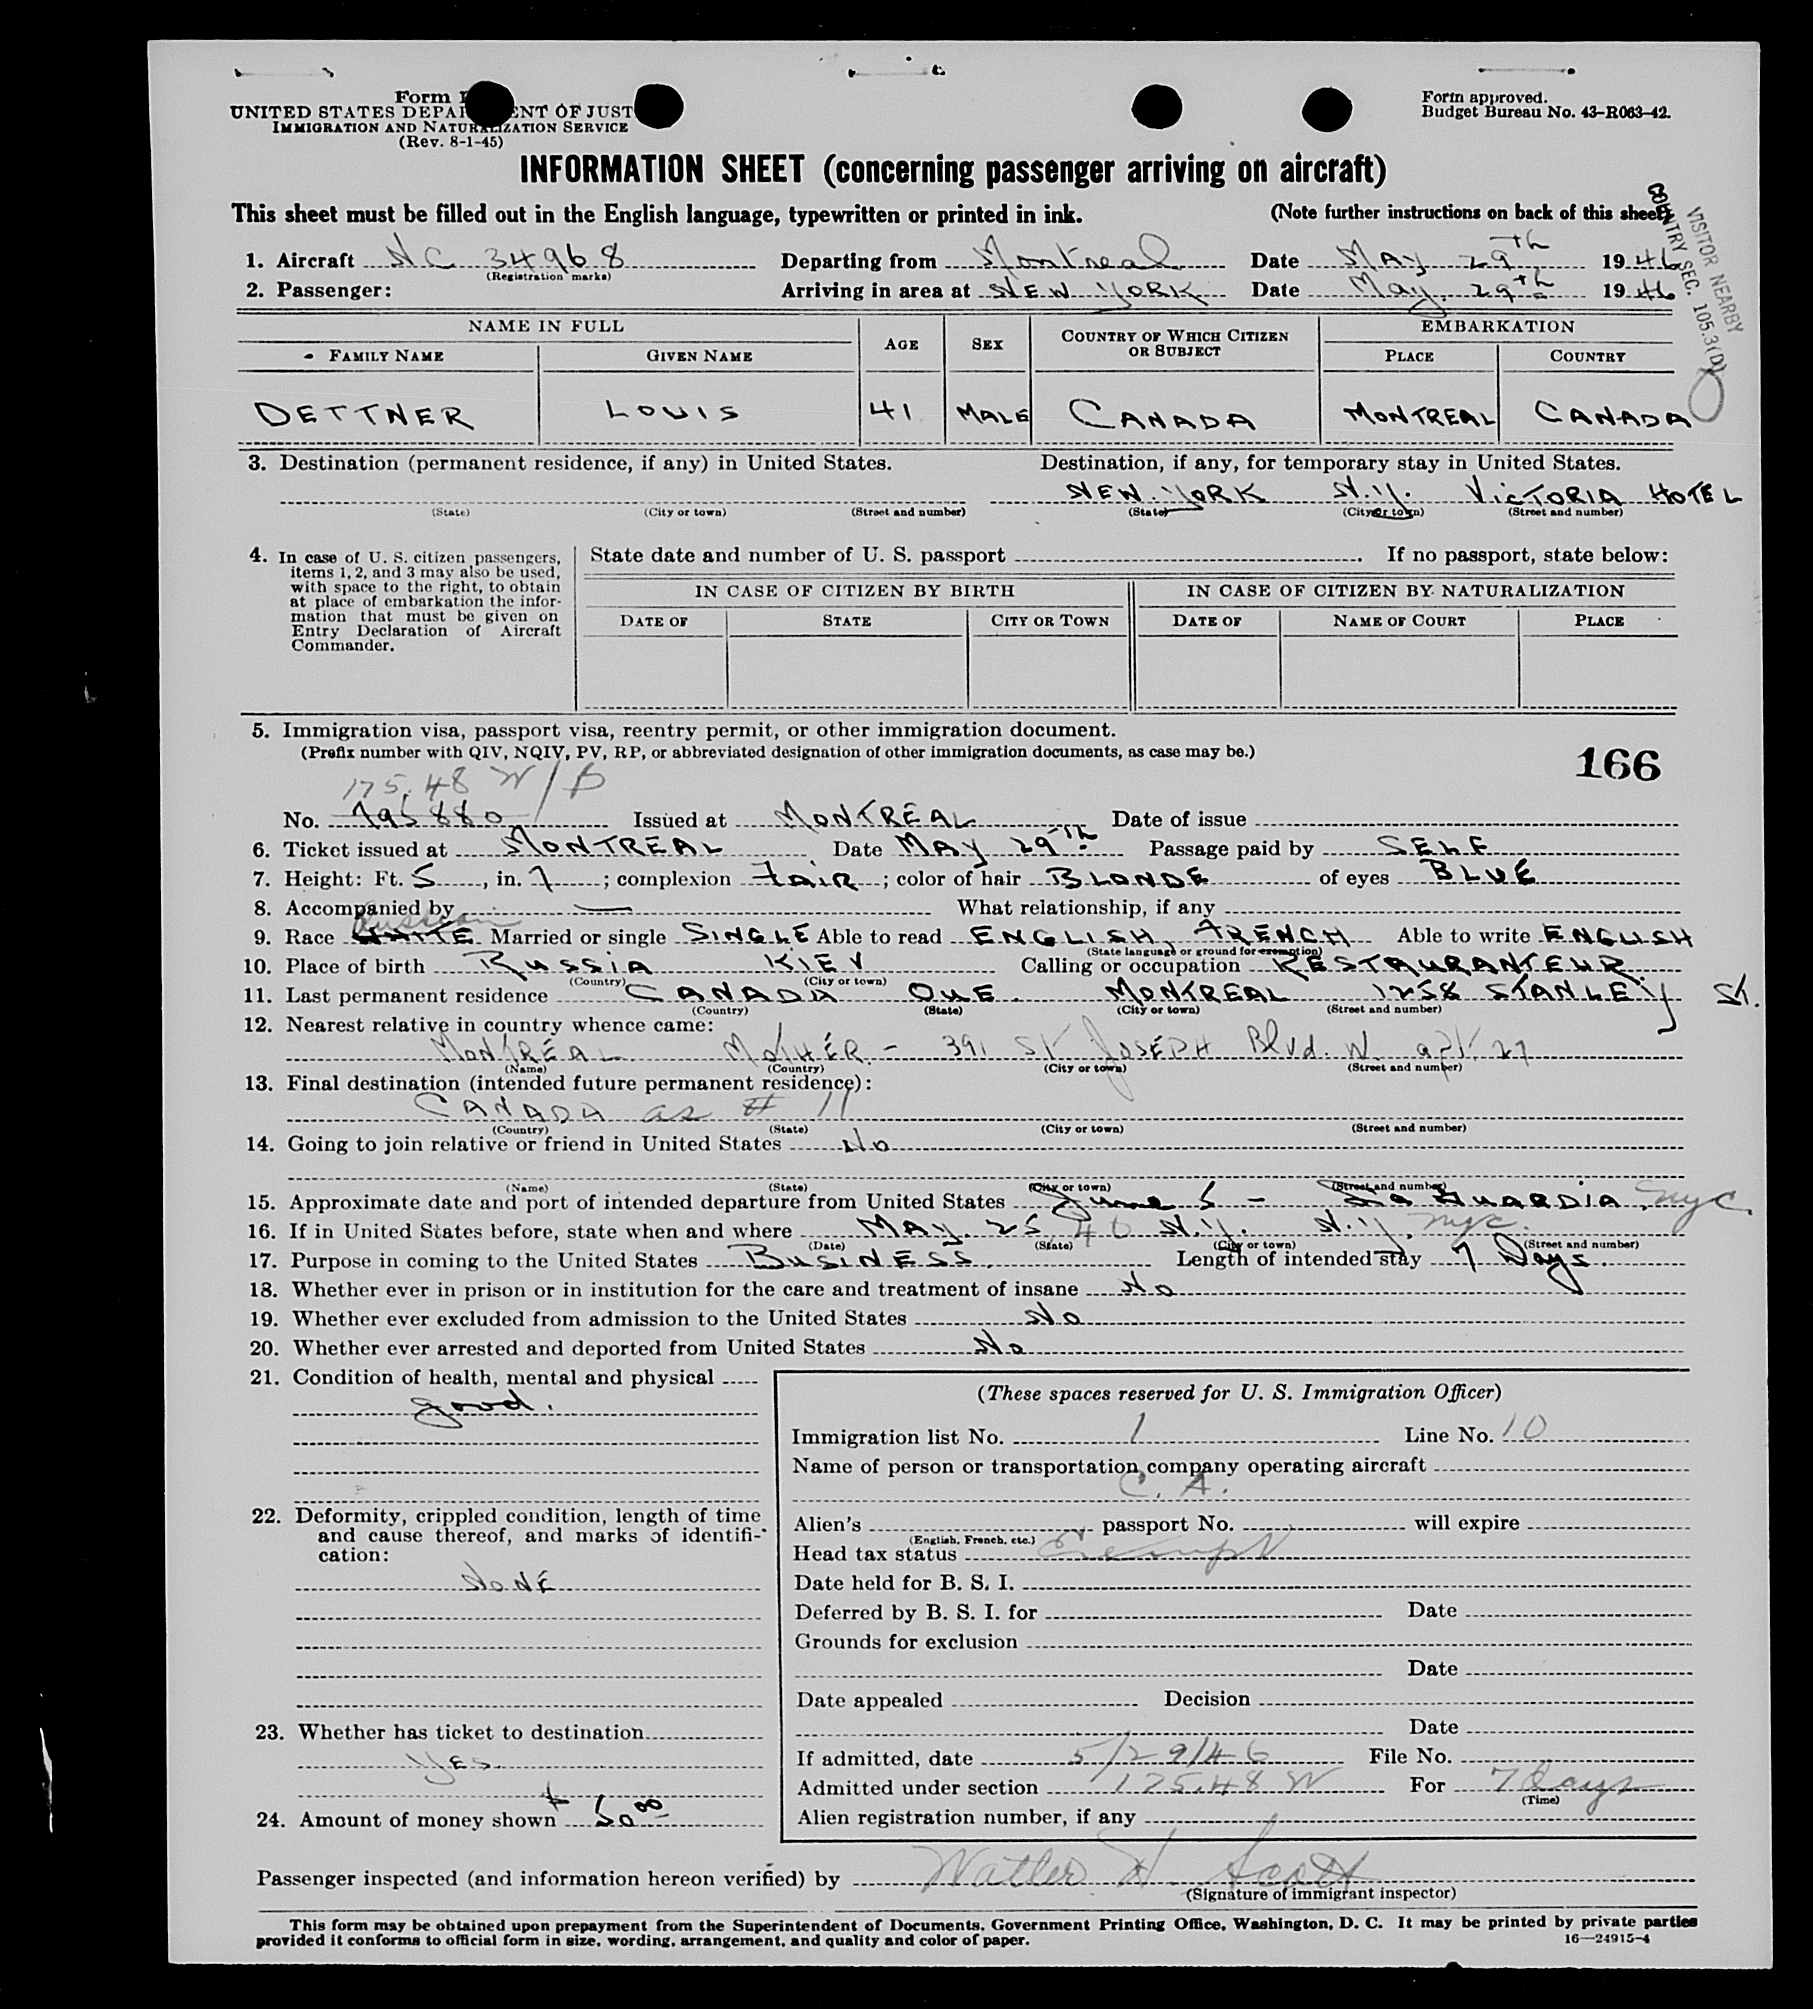 Form I
UNITED STATES DEPA ENT OF JUST
IMMIGRATION AND NATURALIZATION SERVICE
(Rev. 8-1-45)
Form approved.
Budget Bureau No. 43-R063-42.
INFORMATION SHEET (concerning passenger arriving on aircraft)
This sheet must be filled out in the English language, typewritten or printed in ink. (Note further instructions on back of this sheet)
VISITOR NEARBY
COUNTRY SEC. 105.3(D)
1. Aircraft NC 34968 Departing from Montreal Date MAY 29th 1946
(Registration marks)
2. Passenger: Arriving in area at NEW YORK Date May 29th 1946
NAME IN FULL AGE SEX COUNTRY OF WHICH CITIZEN OR SUBJECT EMBARKATION
FAMILY NAME GIVEN NAME PLACE COUNTRY
DETTNER LOUIS 41 MALE CANADA MONTREAL CANADA
3. Destination (permanent residence, if any) in United States. Destination, if any, for temporary stay in United States.
NEW YORK N.Y. VICTORIA HOTEL
(State) (City or town) (Street and number) (State) (City or town) (Street and number)
4. In case of U. S. citizen passengers, items 1, 2, and 3 may also be used, with space to the right, to obtain at place of embarkation the information that must be given on Entry Declaration of Aircraft Commander.
State date and number of U. S. passport . If no passport, state below:
IN CASE OF CITIZEN BY BIRTH IN CASE OF CITIZEN BY NATURALIZATION
DATE OF STATE CITY OR TOWN DATE OF NAME OF COURT PLACE
5. Immigration visa, passport visa, reentry permit, or other immigration document.
(Prefix number with QIV, NQIV, PV, RP, or abbreviated designation of other immigration documents, as case may be.)
166
175.48 W/B
No. 795880 Issued at MONTREAL Date of issue
6. Ticket issued at MONTREAL Date MAY 29th Passage paid by SELF
7. Height: Ft. 5, in. 7; complexion FAIR; color of hair BLONDE of eyes BLUE
8. Accompanied by — What relationship, if any
Russian
9. Race WHITE Married or single SINGLE Able to read ENGLISH, FRENCH Able to write ENGLISH
(State language or ground for exemption)
10. Place of birth RUSSIA KIEV Calling or occupation RESTAURANTEUR.
(Country) (City or town)
11. Last permanent residence CANADA QUE. MONTREAL 1258 STANLEY St.
(Country) (State) (City or town) (Street and number)
12. Nearest relative in country whence came:
MONTREAL MOTHER - 391 ST JOSEPH Blvd. W. apt. 27
(Name) (Country) (City or town) (Street and number)
13. Final destination (intended future permanent residence):
CANADA as # 11
(Country) (State) (City or town) (Street and number)
14. Going to join relative or friend in United States No
(Name) (State) (City or town) (Street and number)
15. Approximate date and port of intended departure from United States June 5 - La GUARDIA, nyc.
16. If in United States before, state when and where MAY. 25 46 N.Y. N.Y. nyc.
(Date) (State) (City or town) (Street and number)
17. Purpose in coming to the United States BUSINESS. Length of intended stay 7 Days.
18. Whether ever in prison or in institution for the care and treatment of insane No
19. Whether ever excluded from admission to the United States No
20. Whether ever arrested and deported from United States No
21. Condition of health, mental and physical
good.
22. Deformity, crippled condition, length of time and cause thereof, and marks of identification:
NONE
23. Whether has ticket to destination
YES.
24. Amount of money shown $ 50.00
(These spaces reserved for U. S. Immigration Officer)
Immigration list No. 1 Line No. 10
Name of person or transportation company operating aircraft
C. A.
Alien's passport No. will expire
(English, French, etc.)
Head tax status Exempt
Date held for B. S. I.
Deferred by B. S. I. for Date
Grounds for exclusion
Date
Date appealed Decision
Date
If admitted, date 5/29/46 File No.
Admitted under section 175.48 W For 7 Days
(Time)
Alien registration number, if any
Passenger inspected (and information hereon verified) by Walter H. Scott
(Signature of immigrant inspector)
This form may be obtained upon prepayment from the Superintendent of Documents, Government Printing Office, Washington, D. C. It may be printed by private parties
provided it conforms to official form in size, wording, arrangement, and quality and color of paper.
16—24915-4